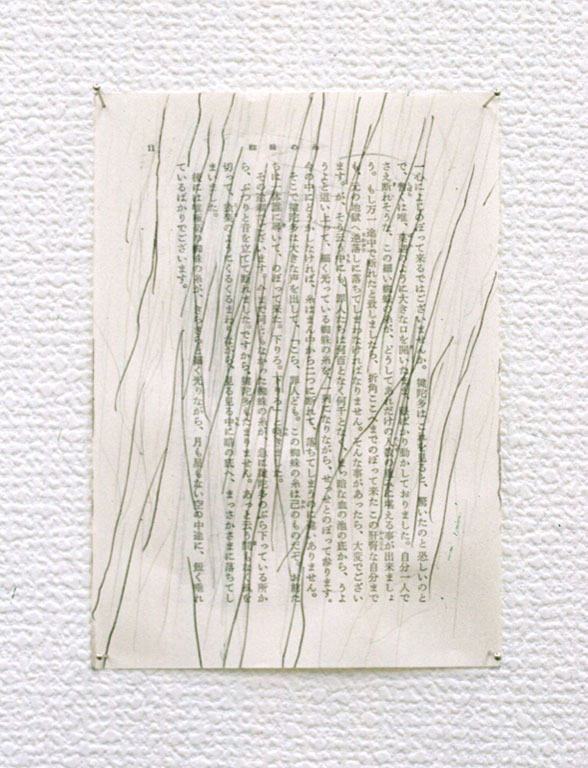 蜘蛛の糸
一心にのぼって来るではございませんか。犍陀多はこれを見ると、驚いたのと恐しいのと
で、暫くは唯、莫迦のように大きな口を開いたまま、眼ばかり動かしておりました。自分一人で
さえ断れそうな、この細い蜘蛛の糸が、どうしてあれだけの人数の重みに堪える事が出来ましょ
う。もし万一途中で断れたと致しましたら、折角ここへまでのぼって来たこの肝腎な自分まで
も、元の地獄へ逆落しに落ちてしまわなければなりません。そんな事があったら、大変でござい
ます。が、そう云う中にも、罪人たちは何百となく何千となく、まっ暗な血の池の底から、うよ
うよと這い上って、細く光っている蜘蛛の糸を、一列になりながら、せっせとのぼって参ります。
今の中にどうかしなければ、糸はまん中から二つに断れて、落ちてしまうのに違いありません。
そこで犍陀多は大きな声を出して、「こら、罪人ども。この蜘蛛の糸は己のものだぞ。お前た
ちは一体誰に尋いて、のぼって来た。下りろ。下りろ」と喚きました。
その途端でございます。今まで何ともなかった蜘蛛の糸が、急に犍陀多のぶら下っている所か
ら、ぷつりと音を立てて断れました。ですから、犍陀多もたまりません。あっと云う間もなく風を
切って、独楽のようにくるくるまわりながら、見る見る中に暗の底へ、まっさかさまに落ちてし
まいました。
後には唯極楽の蜘蛛の糸が、きらきらと細く光りながら、月も星もない空の中途に、短く垂れ
ているばかりでございます。